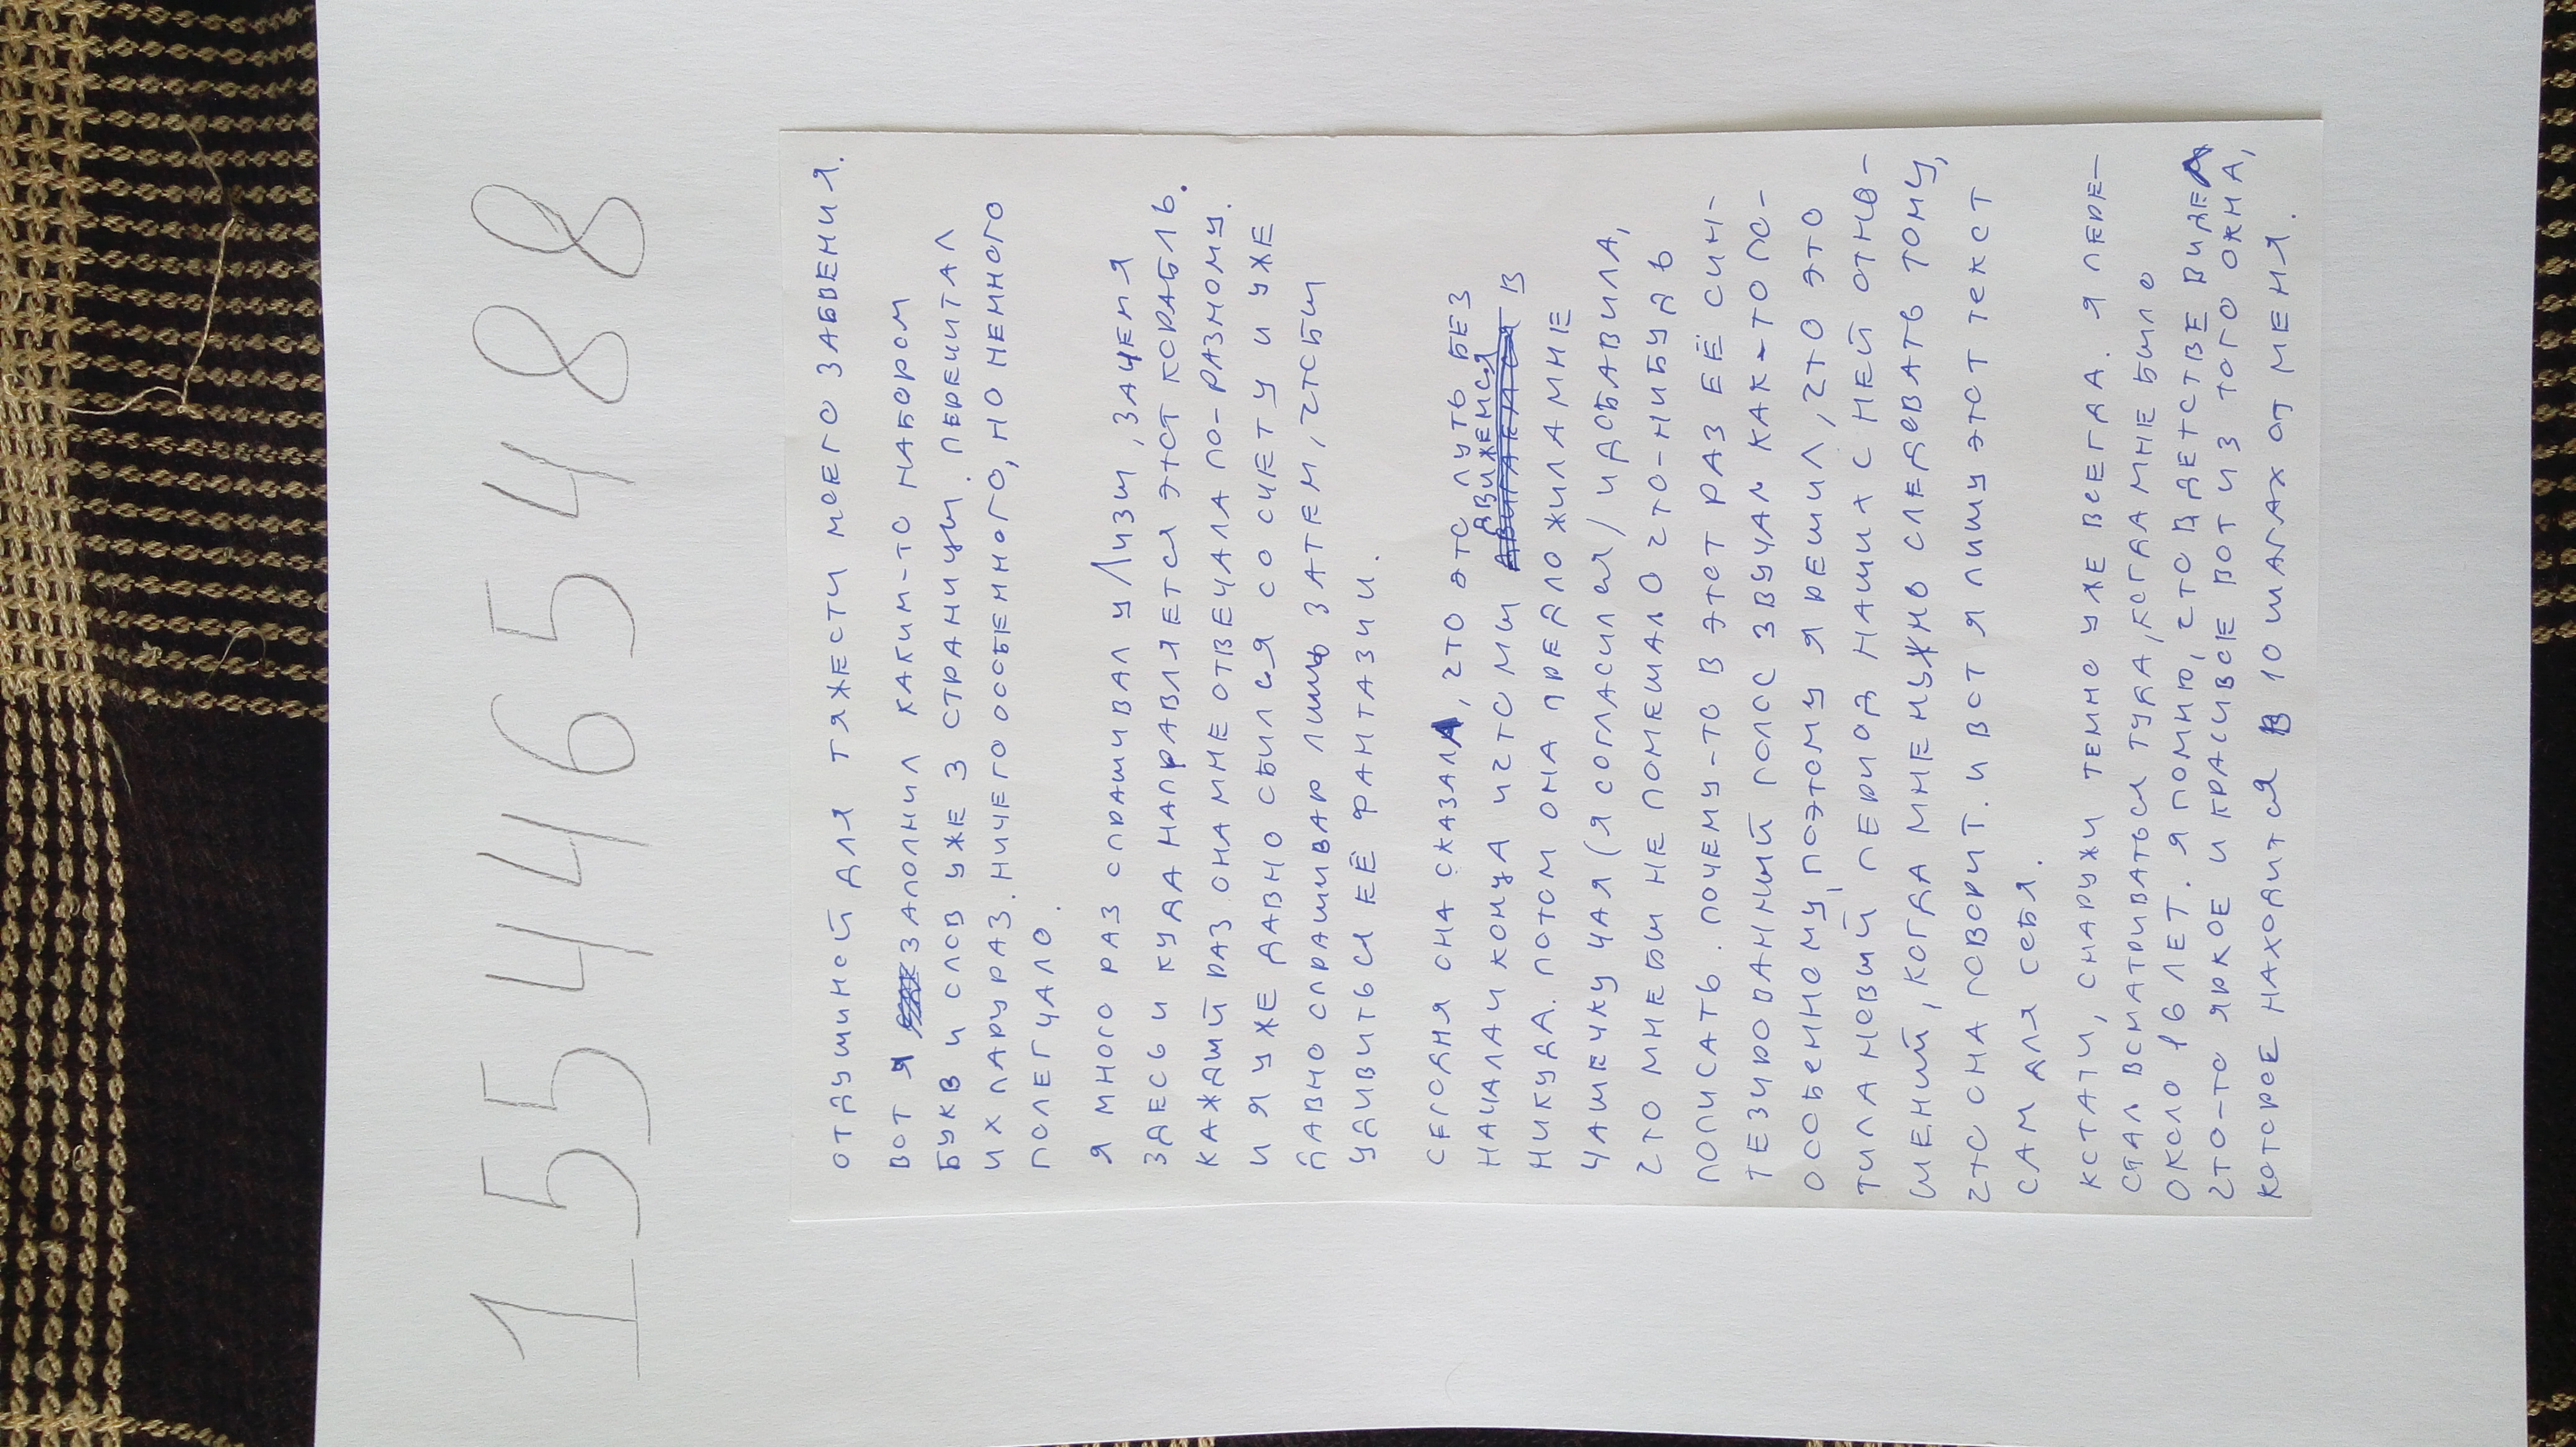 1554465488
отдушиной для тяжести моего забвения.
вот я заполнил каким-то набором
букв и слов уже 3 страницы. перечитал
их пару раз. ничего особенного, но немного
полегчало.
я много раз спрашивал у Лизы, зачем я
здесь и куда направляется этот корабль.
каждый раз она мне отвечала по-разному.
и я уже давно сбился со счету и уже
давно спрашиваю лишь затем, чтобы
удивиться её фантазии.
сегодня она сказала, что это путь без
начала и конца и что мы движемся в
никуда. потом она предложила мне
чашечку чая (я согласился) и добавила,
что мне бы не помешало что-нибудь
пописать. почему-то в этот раз её син-
тезированный голос звучал как-то по-
особенному, поэтому я решил, что это
типа новый период наших с ней отно-
шений, когда мне нужно следовать тому,
что она говорит. и вот я пишу этот текст
сам для себя.
кстати, снаружи темно уже всегда. я пере-
стал всматриваться туда, когда мне было
около 16 лет. я помню, что в детстве видел
что-то яркое и красивое вот из того окна,
которое находится в 10 шагах от меня.